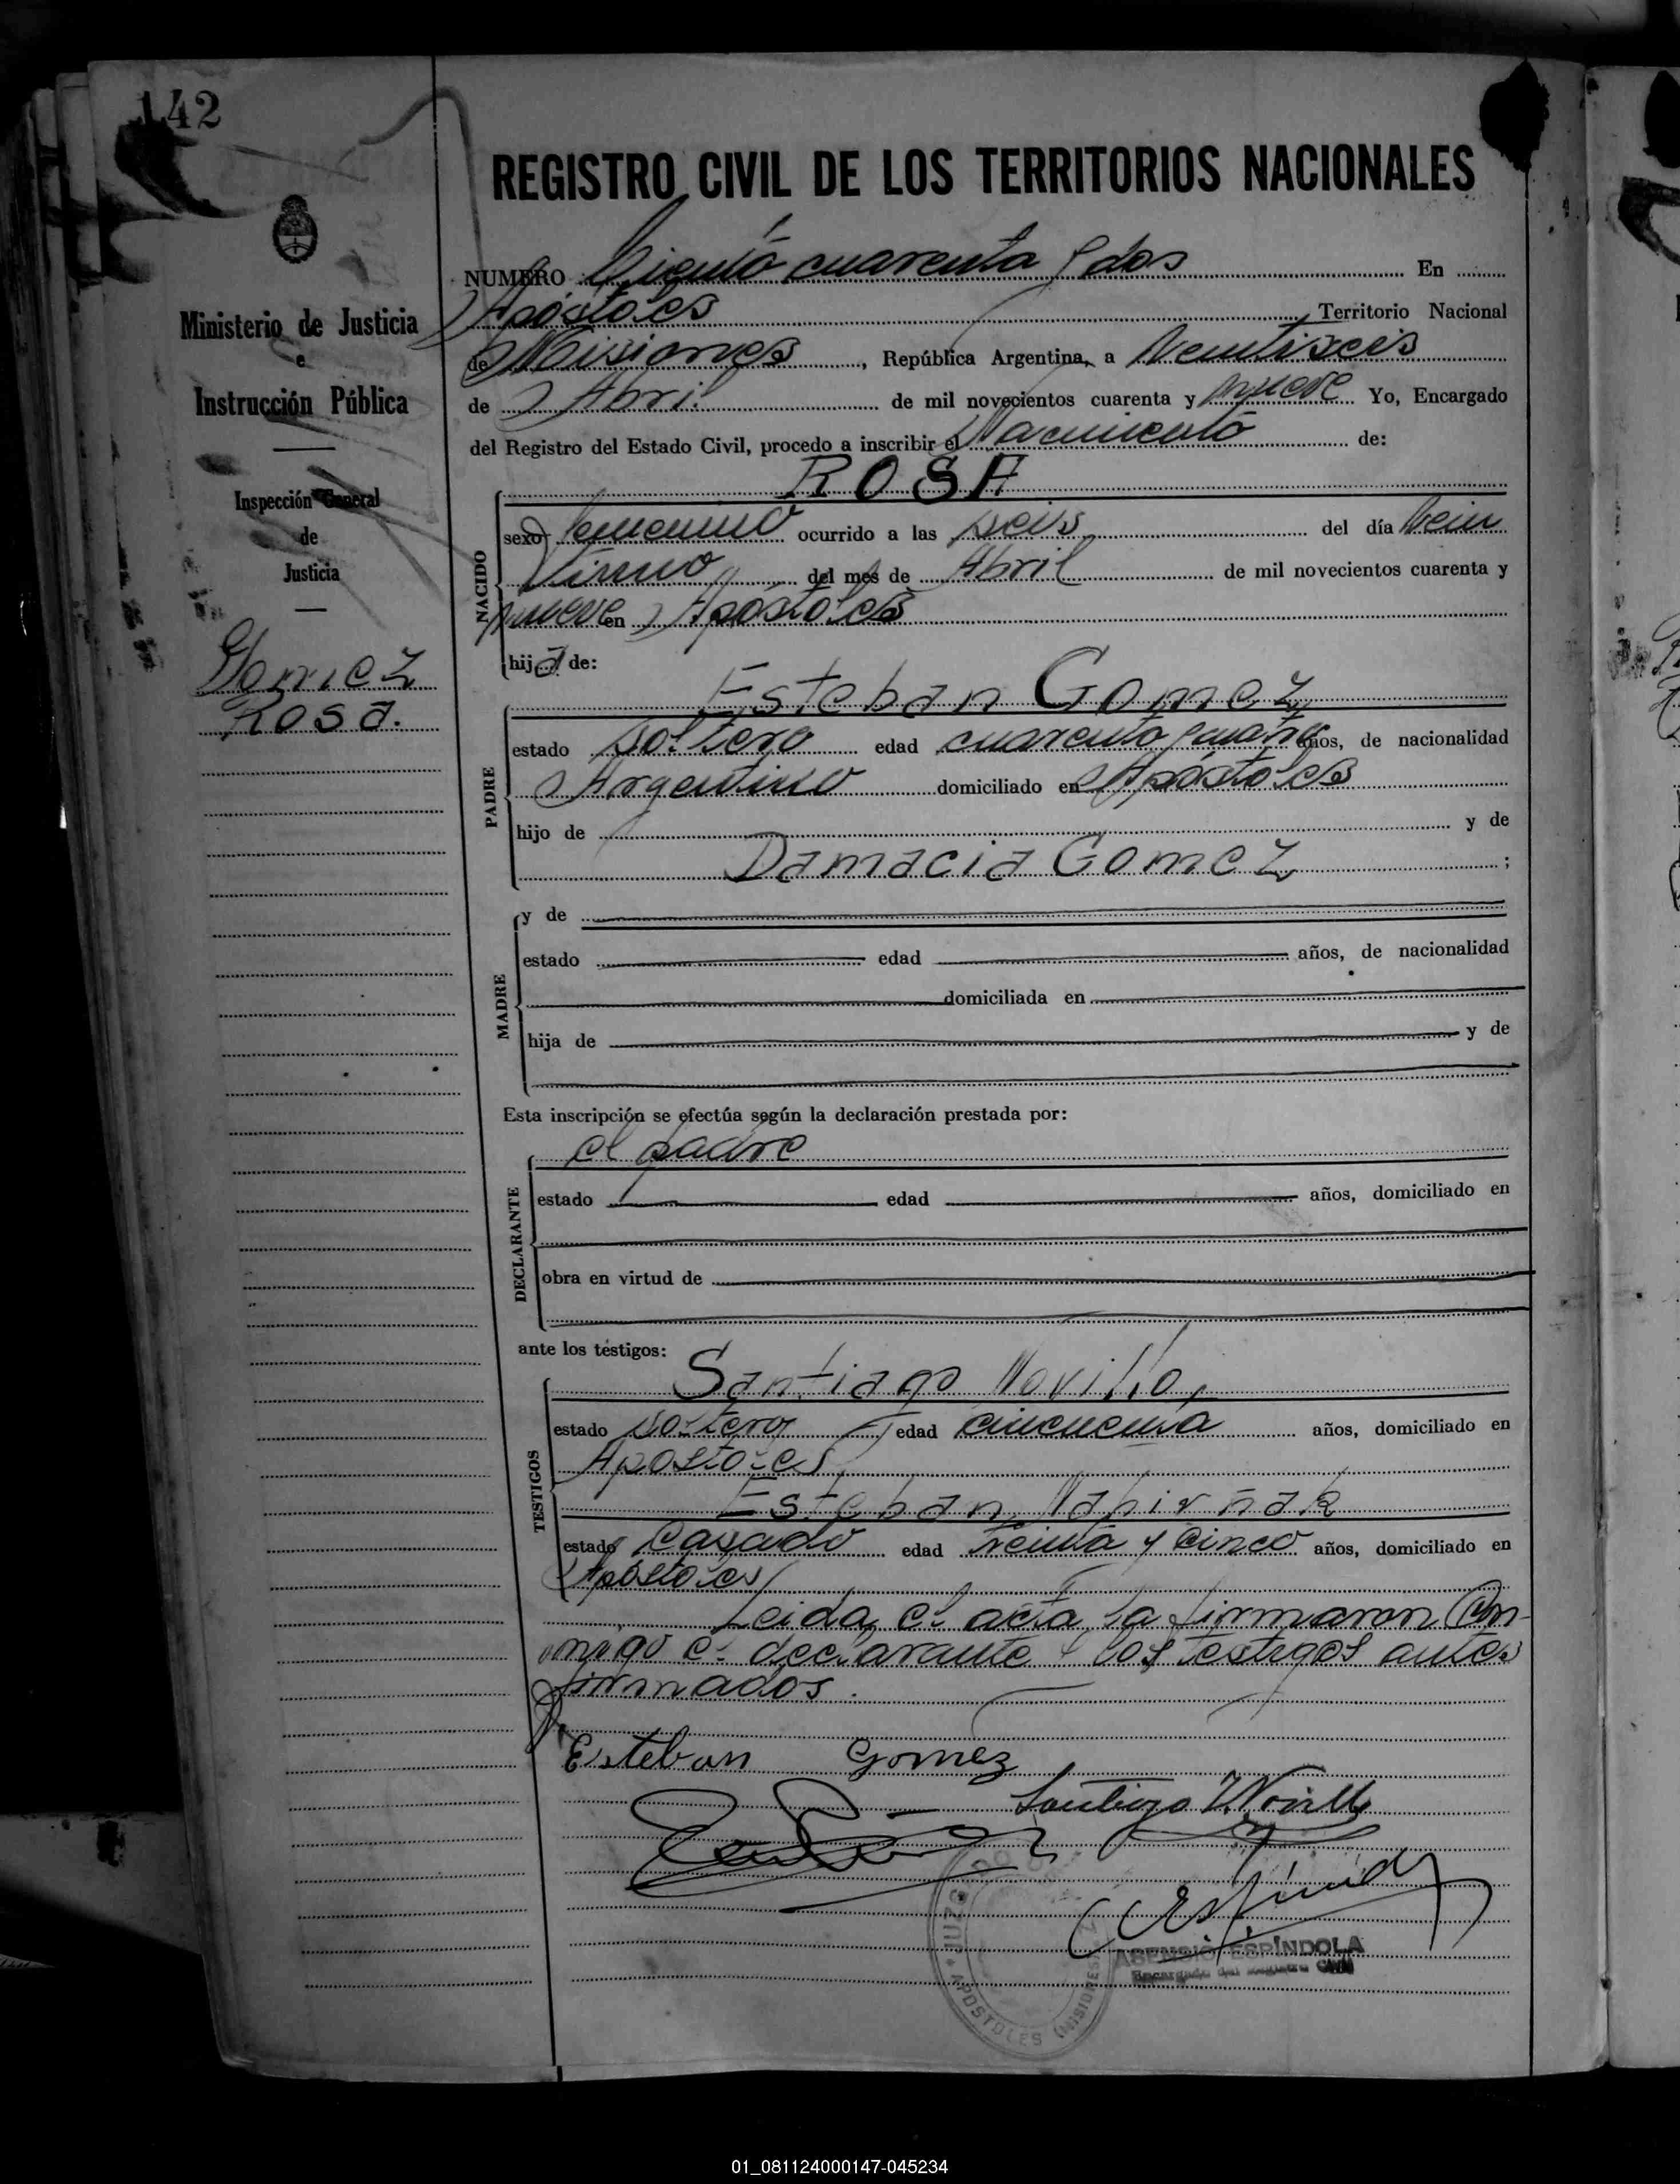 142
REGISTRO CIVIL DE LOS TERRITORIOS NACIONALES
NUMERO Ciento cuarenta y dos En
Apóstoles Territorio Nacional
de Misiones, República Argentina, a Veintiseis
de Abril de mil novecientos cuarenta y nueve Yo, Encargado
del Registro del Estado Civil, procedo a inscribir el Nacimiento de:
ROSA
NACIDO
sexo femenino ocurrido a las seis del día Vein
tiuno del mes de Abril de mil novecientos cuarenta y
nueve en Apóstoles
hija de:
Ministerio de Justicia
e
Instrucción Pública
Inspección General
de
Justicia
Gomez
Rosa.
Esteban Gomez
PADRE
estado soltero edad cuarenta y cuatro años, de nacionalidad
Argentino domiciliado en Apóstoles
hijo de y de
Damacia Gomez ;
MADRE
y de
estado edad años, de nacionalidad
domiciliada en
hija de y de
Esta inscripción se efectúa según la declaración prestada por:
el padre
DECLARANTE
estado edad años, domiciliado en
obra en virtud de
ante los testigos:
TESTIGOS
Santiago Novillo,
estado soltero edad cincuenta años, domiciliado en
Apostoles
Esteban Nahirñak
estado Casado edad treinta y cinco años, domiciliado en
Apóstoles
Leida el acta la firmaron Con
migo el declarante y los testigos antes
firmados.
Esteban Gomez
Santiago Novillo
JUZG
APOSTOLES (MISIONES)
ASENSIO ESPÍNDOLA
Encargado del Registro Civil
01_081124000147-045234